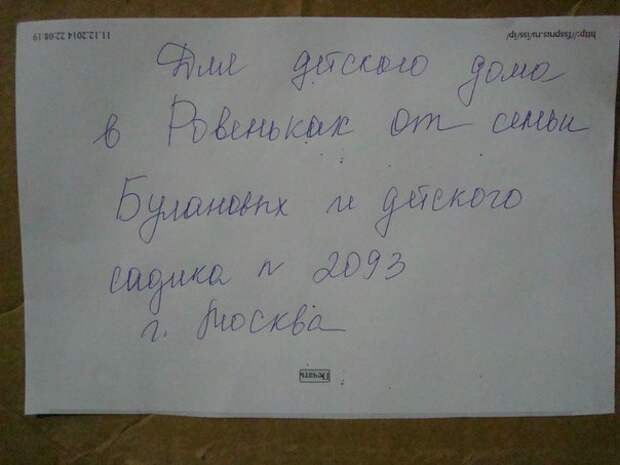 http://fsspnus.ru/iss/ip/ 11.12.2014 22:08:19
Для детского дома
в Ровеньках от семьи
Булановых и детского
садика n 2093
г. Москва
Печать